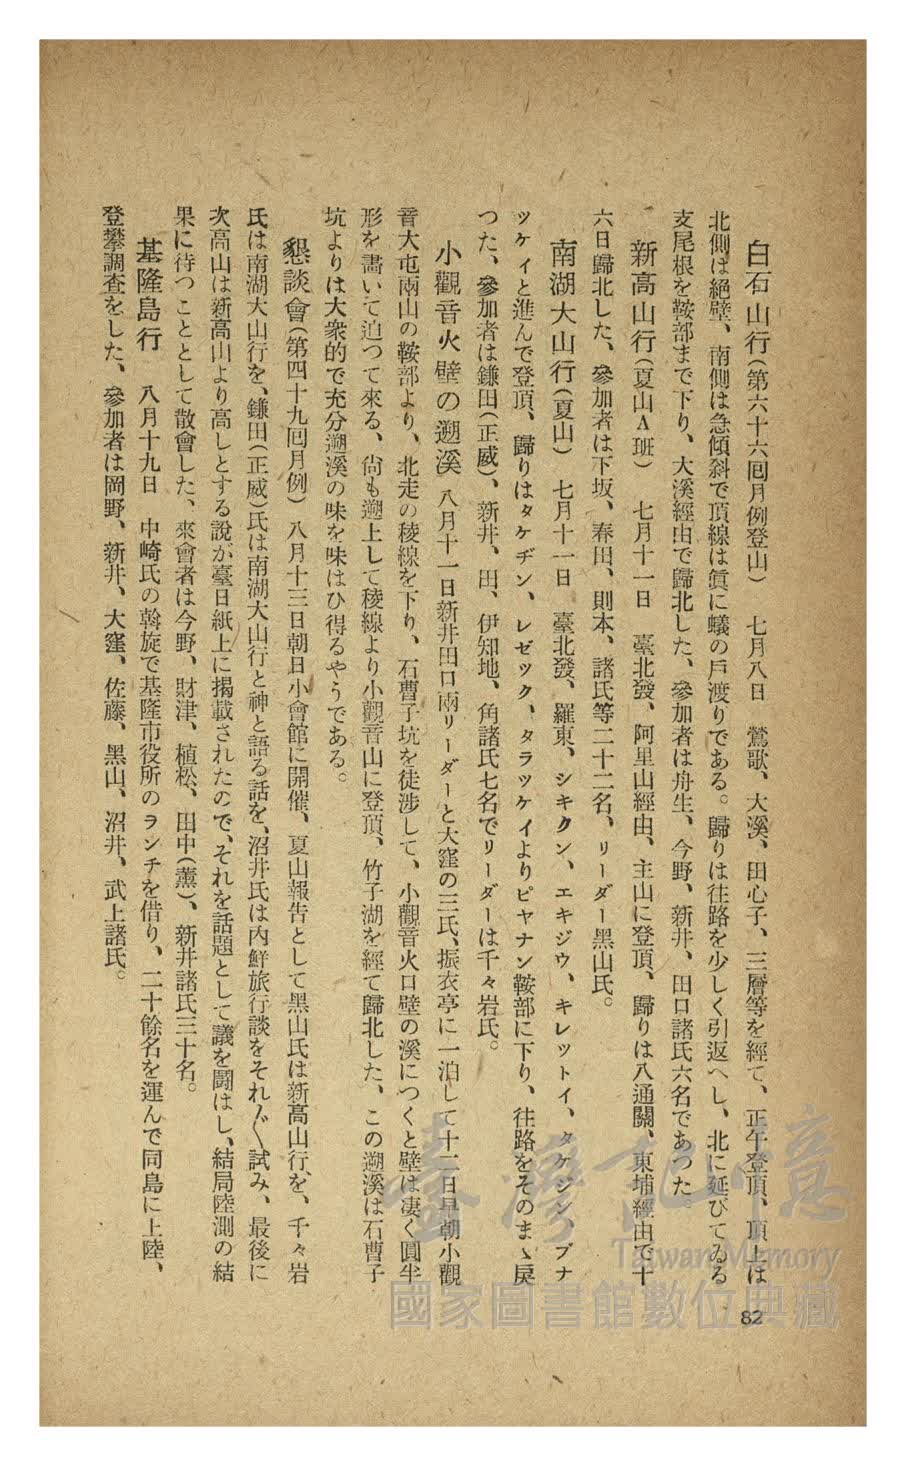 白石山行(第六十六囘月例登山) 七月八日 鶯歌、大溪、田心子、三層等を經て、正午登頂、頂上は
北側は絕壁、南側は急傾斜で頂線は眞に蟻の戶渡りである。歸りは往路を少しく引返へし、北に延びてゐる
支尾根を鞍部まで下り、大溪經由で歸北した、參加者は舟生、今野、新井、田口諸氏六名であつた。
新高山行(夏山A班) 七月十一日 臺北發、阿里山經由、主山に登頂、歸りは八通關、東埔經由で十
六日歸北した、參加者は下坂、春田、則本、諸氏等二十二名、リーダー黑山氏。
南湖大山行(夏山) 七月十一日 臺北發、羅東、シキクン、エキジウ、キレットイ、タケジン、ブナ
ッケイと進んで登頂、歸りはタケヂン、レゼック、タラッケイよりピヤナン鞍部に下り、往路をそのまゝ戾
つた、參加者は鎌田(正威)、新井、田、伊知地、角諸氏七名でリーダーは千々岩氏。
小觀音火壁の遡溪 八月十一日新井田口兩リーダーと大窪の三氏、振衣亭に一泊して十二日早朝小觀
音大屯兩山の鞍部より、北走の稜線を下り、石曹子坑を徒涉して、小觀音火口壁の溪につくと壁は凄く圓半
形を畵いて迫つて來る、尙も遡上して稜線より小觀音山に登頂、竹子湖を經て歸北した、この遡溪は石曹子
坑よりは大衆的で充分遡溪の味を味はひ得るやうである。
懇談會(第四十九囘月例) 八月十三日朝日小會館に開催、夏山報告として黑山氏は新高山行を、千々岩
氏は南湖大山行を、鎌田(正威)氏は南湖大山行と神と語る話を、沼井氏は內鮮旅行談をそれ〴〵試み、最後に
次高山は新高山より高しとする說が臺日紙上に揭載されたので、それを話題として議を鬪はし、結局陸測の結
果に待つこととして散會した、來會者は今野、財津、植松、田中(薰)、新井諸氏三十名。
基隆島行 八月十九日 中崎氏の斡旋で基隆市役所のランチを借り、二十餘名を運んで同島に上陸、
登攀調查をした、參加者は岡野、新井、大窪、佐藤、黑山、沼井、武上諸氏。
82
臺灣記憶
Taiwan Memory
國家圖書館數位典藏